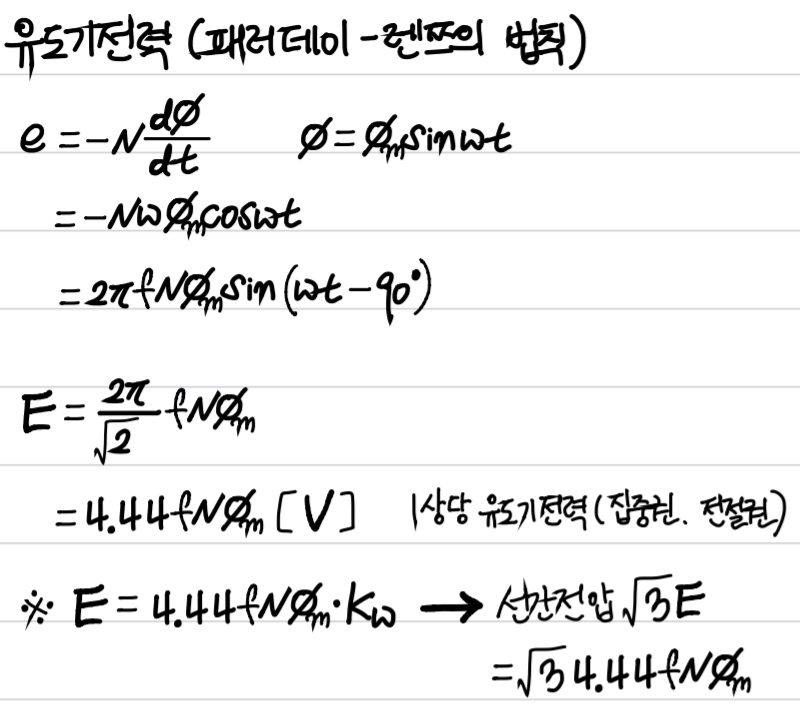 유도기전력 (패러데이-렌쯔의 법칙)
e = -N dØ/dt Ø = Øm sin ωt
= -NωØm cos ωt
= 2πfNØm sin (ωt - 90°)
E = 2π/√2 fNØm
= 4.44fNØm [V] 1상당 유도기전력 (집중권. 전절권)
※ E = 4.44fNØm·Kω → 선간전압 √3E
= √3 4.44fNØm